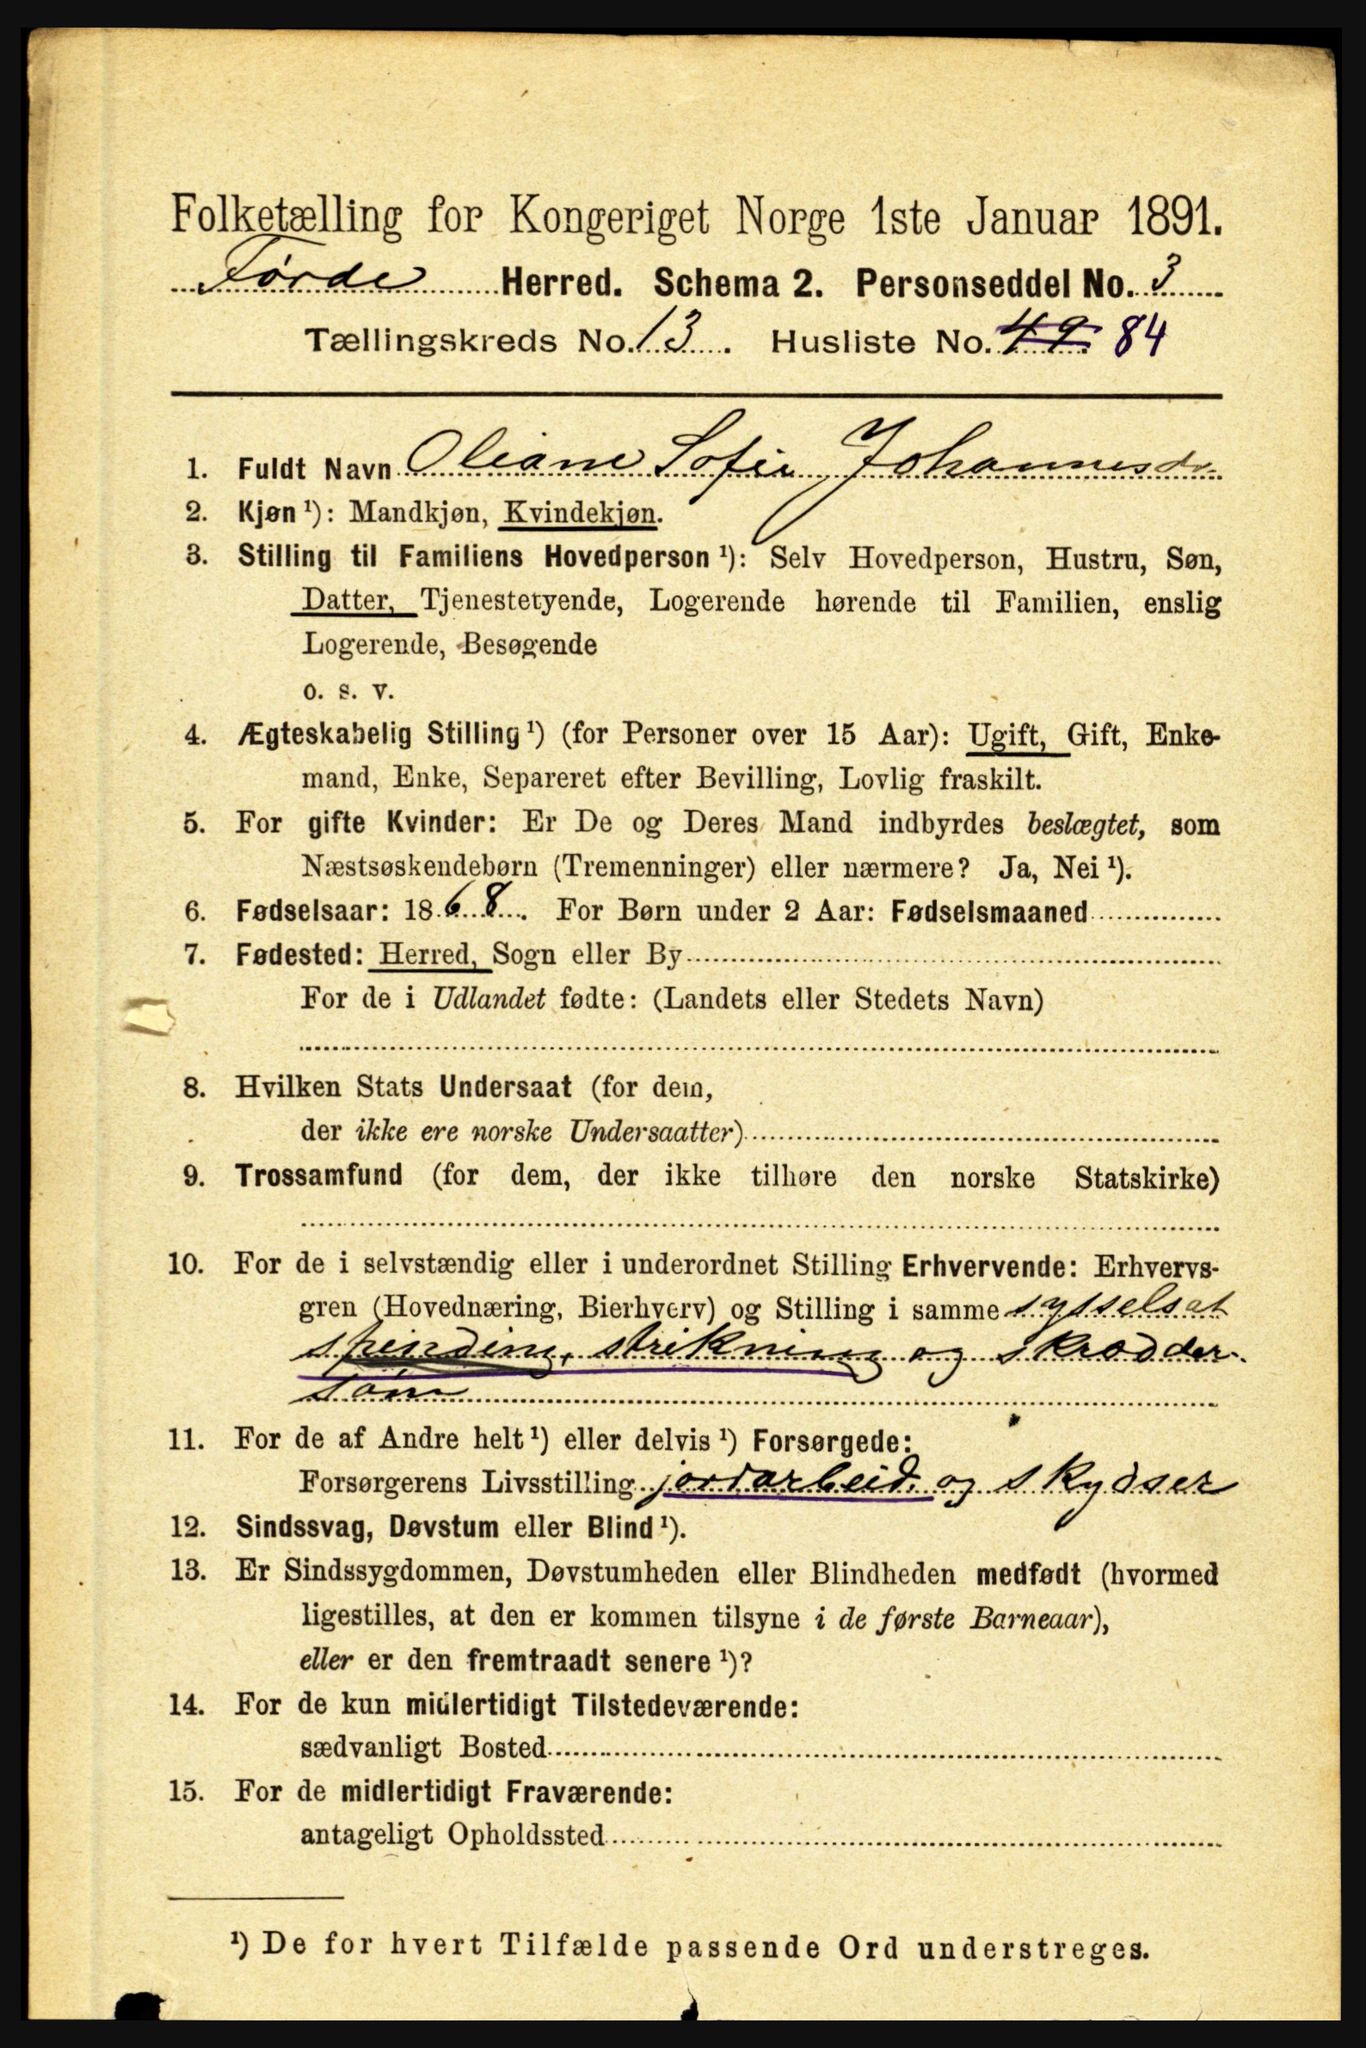 Folketælling for Kongeriget Norge 1ste Januar 1891.
Førde Herred. Schema 2. Personseddel No. 3
Tællingskreds No. 13. Husliste No. 49 84
1. Fuldt Navn Oliane Sofie Johannesdr
2. Kjøn ¹): Mandkjøn, Kvindekjøn.
3. Stilling til Familiens Hovedperson ¹): Selv Hovedperson, Hustru, Søn,
Datter, Tjenestetyende, Logerende hørende til Familien, enslig
Logerende, Besøgende
o. s. v.
4. Ægteskabelig Stilling ¹) (for Personer over 15 Aar): Ugift, Gift, Enke-
mand, Enke, Separeret efter Bevilling, Lovlig fraskilt.
5. For gifte Kvinder: Er De og Deres Mand indbyrdes beslægtet, som
Næstsøskendebørn (Tremenninger) eller nærmere? Ja, Nei ¹).
6. Fødselsaar: 1868. For Børn under 2 Aar: Fødselsmaaned
7. Fødested: Herred, Sogn eller By
For de i Udlandet fødte: (Landets eller Stedets Navn)
8. Hvilken Stats Undersaat (for dem,
der ikke ere norske Undersaatter)
9. Trossamfund (for dem, der ikke tilhøre den norske Statskirke)
10. For de i selvstændig eller i underordnet Stilling Erhvervende: Erhvervs-
gren (Hovednæring, Bierhverv) og Stilling i samme sysselsat
spinding, strikning og skrodder-
søm
11. For de af Andre helt ¹) eller delvis ¹) Forsørgede:
Forsørgerens Livsstilling jordarbeid. og skydser
12. Sindssvag, Døvstum eller Blind ¹).
13. Er Sindssygdommen, Døvstumheden eller Blindheden medfødt (hvormed
ligestilles, at den er kommen tilsyne i de første Barneaar),
eller er den fremtraadt senere ¹)?
14. For de kun midlertidigt Tilstedeværende:
sædvanligt Bosted
15. For de midlertidigt Fraværende:
antageligt Opholdssted
¹) De for hvert Tilfælde passende Ord understreges.